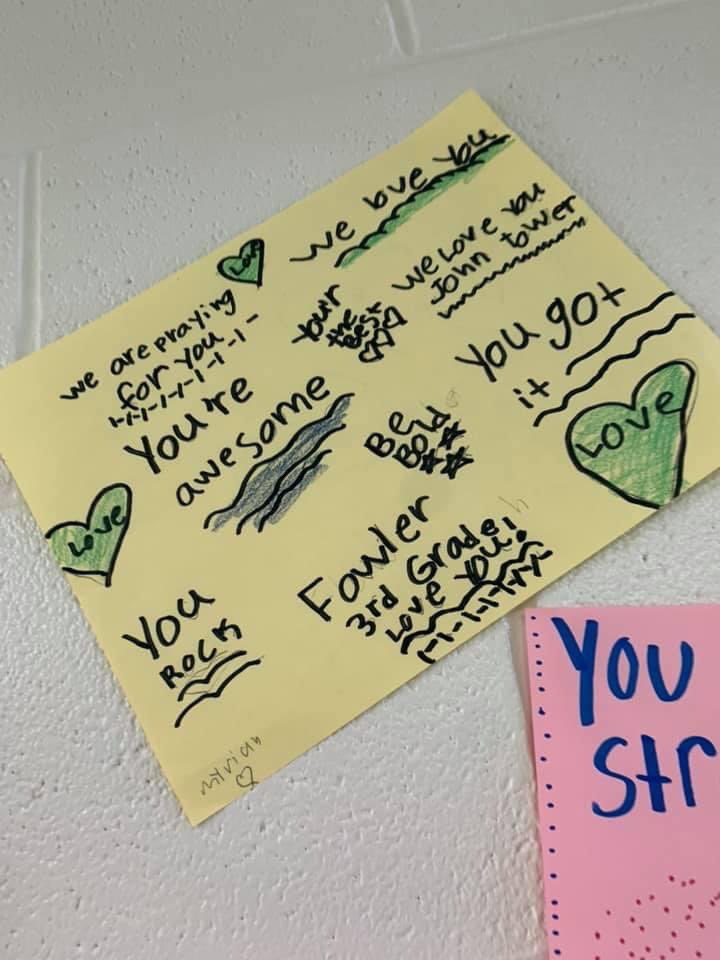 we love you
Love
we are praying
for you
your
the
Best
we Love you
John tower
You got
it
You're
awesome
Be
Bold
Love
Love
Fowler
3rd Grade
Love you!
You
ROCK
You
Str